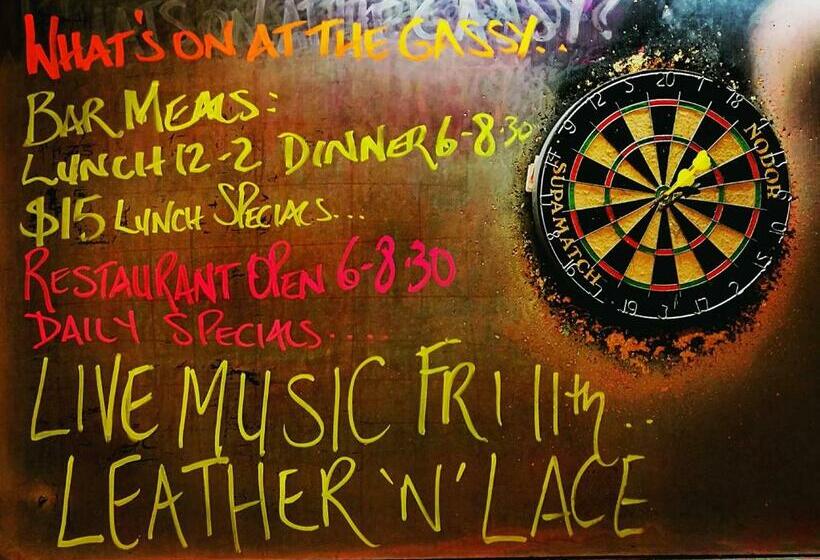 WHAT'S ON AT THE GASSY..
BAR MEALS:
LUNCH 12-2 DINNER 6-8.30
$15 LUNCH SPECIALS...
RESTAURANT OPEN 6-8.30
DAILY SPECIALS....
LIVE MUSIC FRI 11th..
LEATHER 'N' LACE
20
18
12
5
9
NODOR
SUPAMATCH
15
2
17
3
19
7